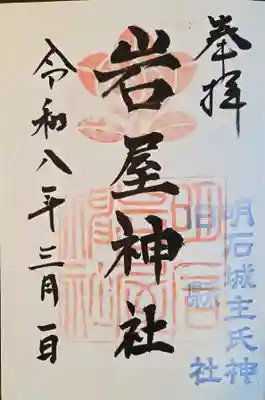 奉拝
明石城主氏神
旧縣社
岩屋神社
令和八年三月一日